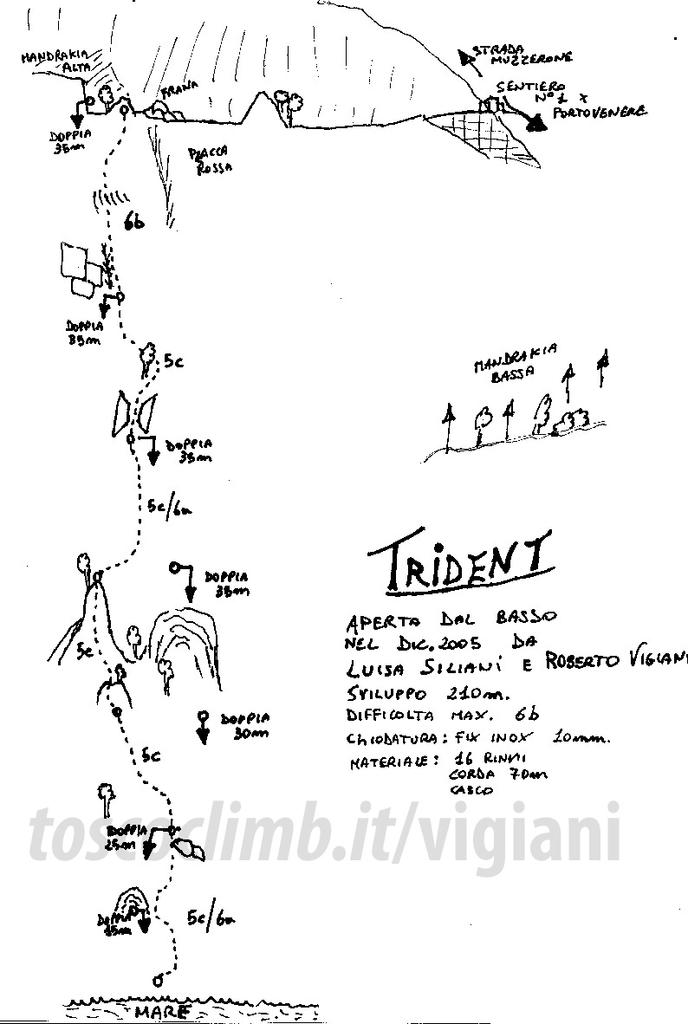 MANDRAKIA
ALTA
FRANA
STRADA
MUZZERONE
SENTIERO
N°1 x
PORTOVENERE
DOPPIA
35m
PLACCA
ROSSA
6b
DOPPIA
35m
5c
MANDRAKIA
BASSA
DOPPIA
35m
5c/6a
TRIDENT
DOPPIA
35m
APERTA DAL BASSO
NEL DIC. 2005 DA
LUISA SILIANI E ROBERTO VIGIANI
SVILUPPO 210m.
DIFFICOLTA MAX. 6b
CHIODATURA: FIX INOX 10mm.
MATERIALE: 16 RINVII
CORDA 70m
CASCO
5c
DOPPIA
30m
5c
toscoclimb.it/vigiani
DOPPIA
25m
5c/6a
DOPPIA
MARE